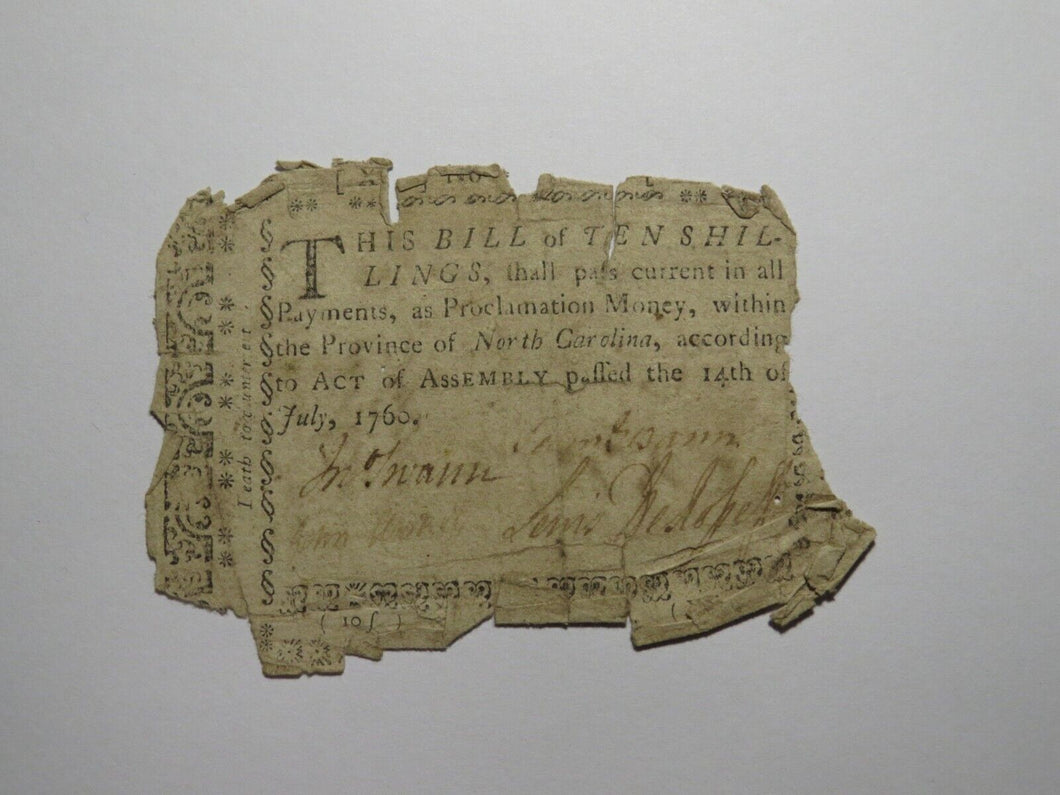 THIS BILL of TEN SHIL-
LINGS, ſhall paſs current in all
Payments, as Proclamation Money, within
the Province of North Carolina, according
to ACT of ASSEMBLY paſſed the 14th of
July, 1760.
Jno Swann
Lewis DeRosset
Death to Counterfeit
( 10ſ )